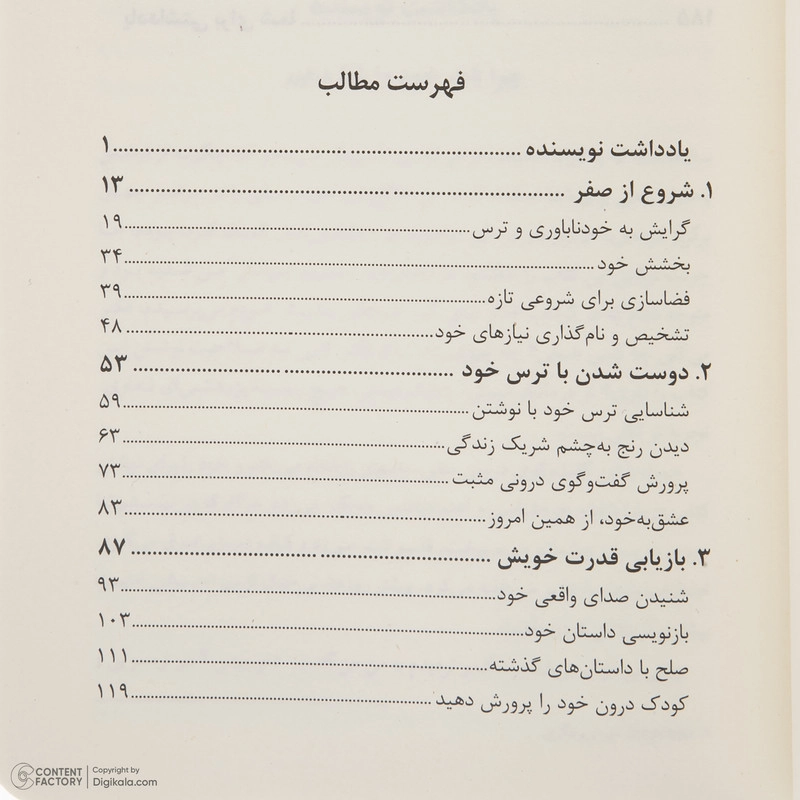 فهرست مطالب
یادداشت نویسنده ........ ۱
۱. شروع از صفر ........ ۱۳
گرایش به خودناباوری و ترس ........ ۱۹
بخشش خود ........ ۳۴
فضاسازی برای شروعی تازه ........ ۳۹
تشخیص و نام‌گذاری نیازهای خود ........ ۴۸
۲. دوست شدن با ترس خود ........ ۵۳
شناسایی ترس خود با نوشتن ........ ۵۹
دیدن رنج به‌چشم شریک زندگی ........ ۶۳
پرورش گفت‌وگوی درونی مثبت ........ ۷۳
عشق‌به‌خود، از همین امروز ........ ۸۳
۳. بازیابی قدرت خویش ........ ۸۷
شنیدن صدای واقعی خود ........ ۹۳
بازنویسی داستان خود ........ ۱۰۳
صلح با داستان‌های گذشته ........ ۱۱۱
کودک درون خود را پرورش دهید ........ ۱۱۹
CONTENT FACTORY
Copyright by
Digikala.com